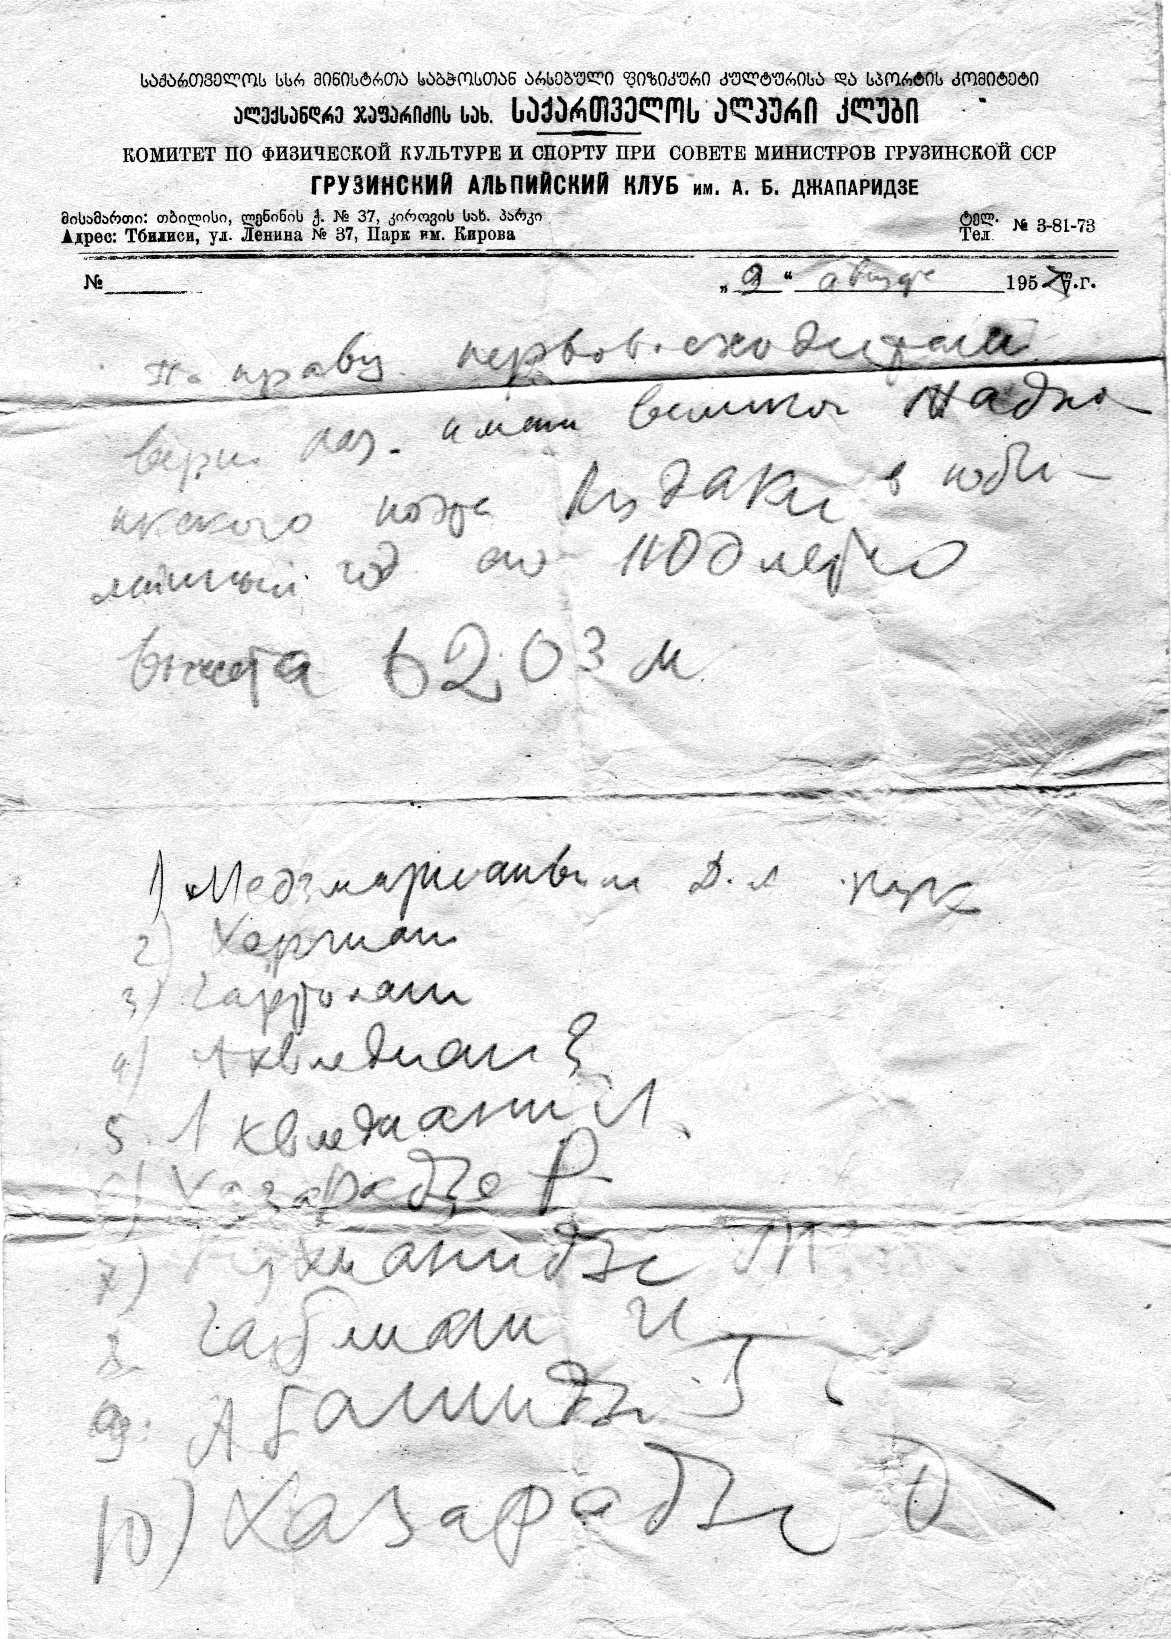 საქართველოს სსრ მინისტრთა საბჭოსთან არსებული ფიზიკური კულტურისა და სპორტის კომიტეტი
ალექსანდრე ჯაფარიძის სახ. საქართველოს ალპური კლუბი
КОМИТЕТ ПО ФИЗИЧЕСКОЙ КУЛЬТУРЕ И СПОРТУ ПРИ СОВЕТЕ МИНИСТРОВ ГРУЗИНСКОЙ ССР
ГРУЗИНСКИЙ АЛЬПИЙСКИЙ КЛУБ им. А. Б. ДЖАПАРИДЗЕ
მისამართი: თბილისი, ლენინის ქ. № 37, კიროვის სახ. პარკი
Адрес: Тбилиси, ул. Ленина № 37, Парк им. Кирова
ტელ.
Тел. № 3-81-73
№ „9“ 195 г.
По праву первовосходители
имени великого таджи
кского поэта Рудаки в юби-
лейный год его 1100 летию
высота 6203 м
1) Медзмариашвили Д.
2) Хергиани
3)
4) Ахвледиани З
5. Ахвледиани Л.
6) Хазарадзе Р.
7)
8. Габлиани И
9. Абашидзе
10) Хазарадзе О